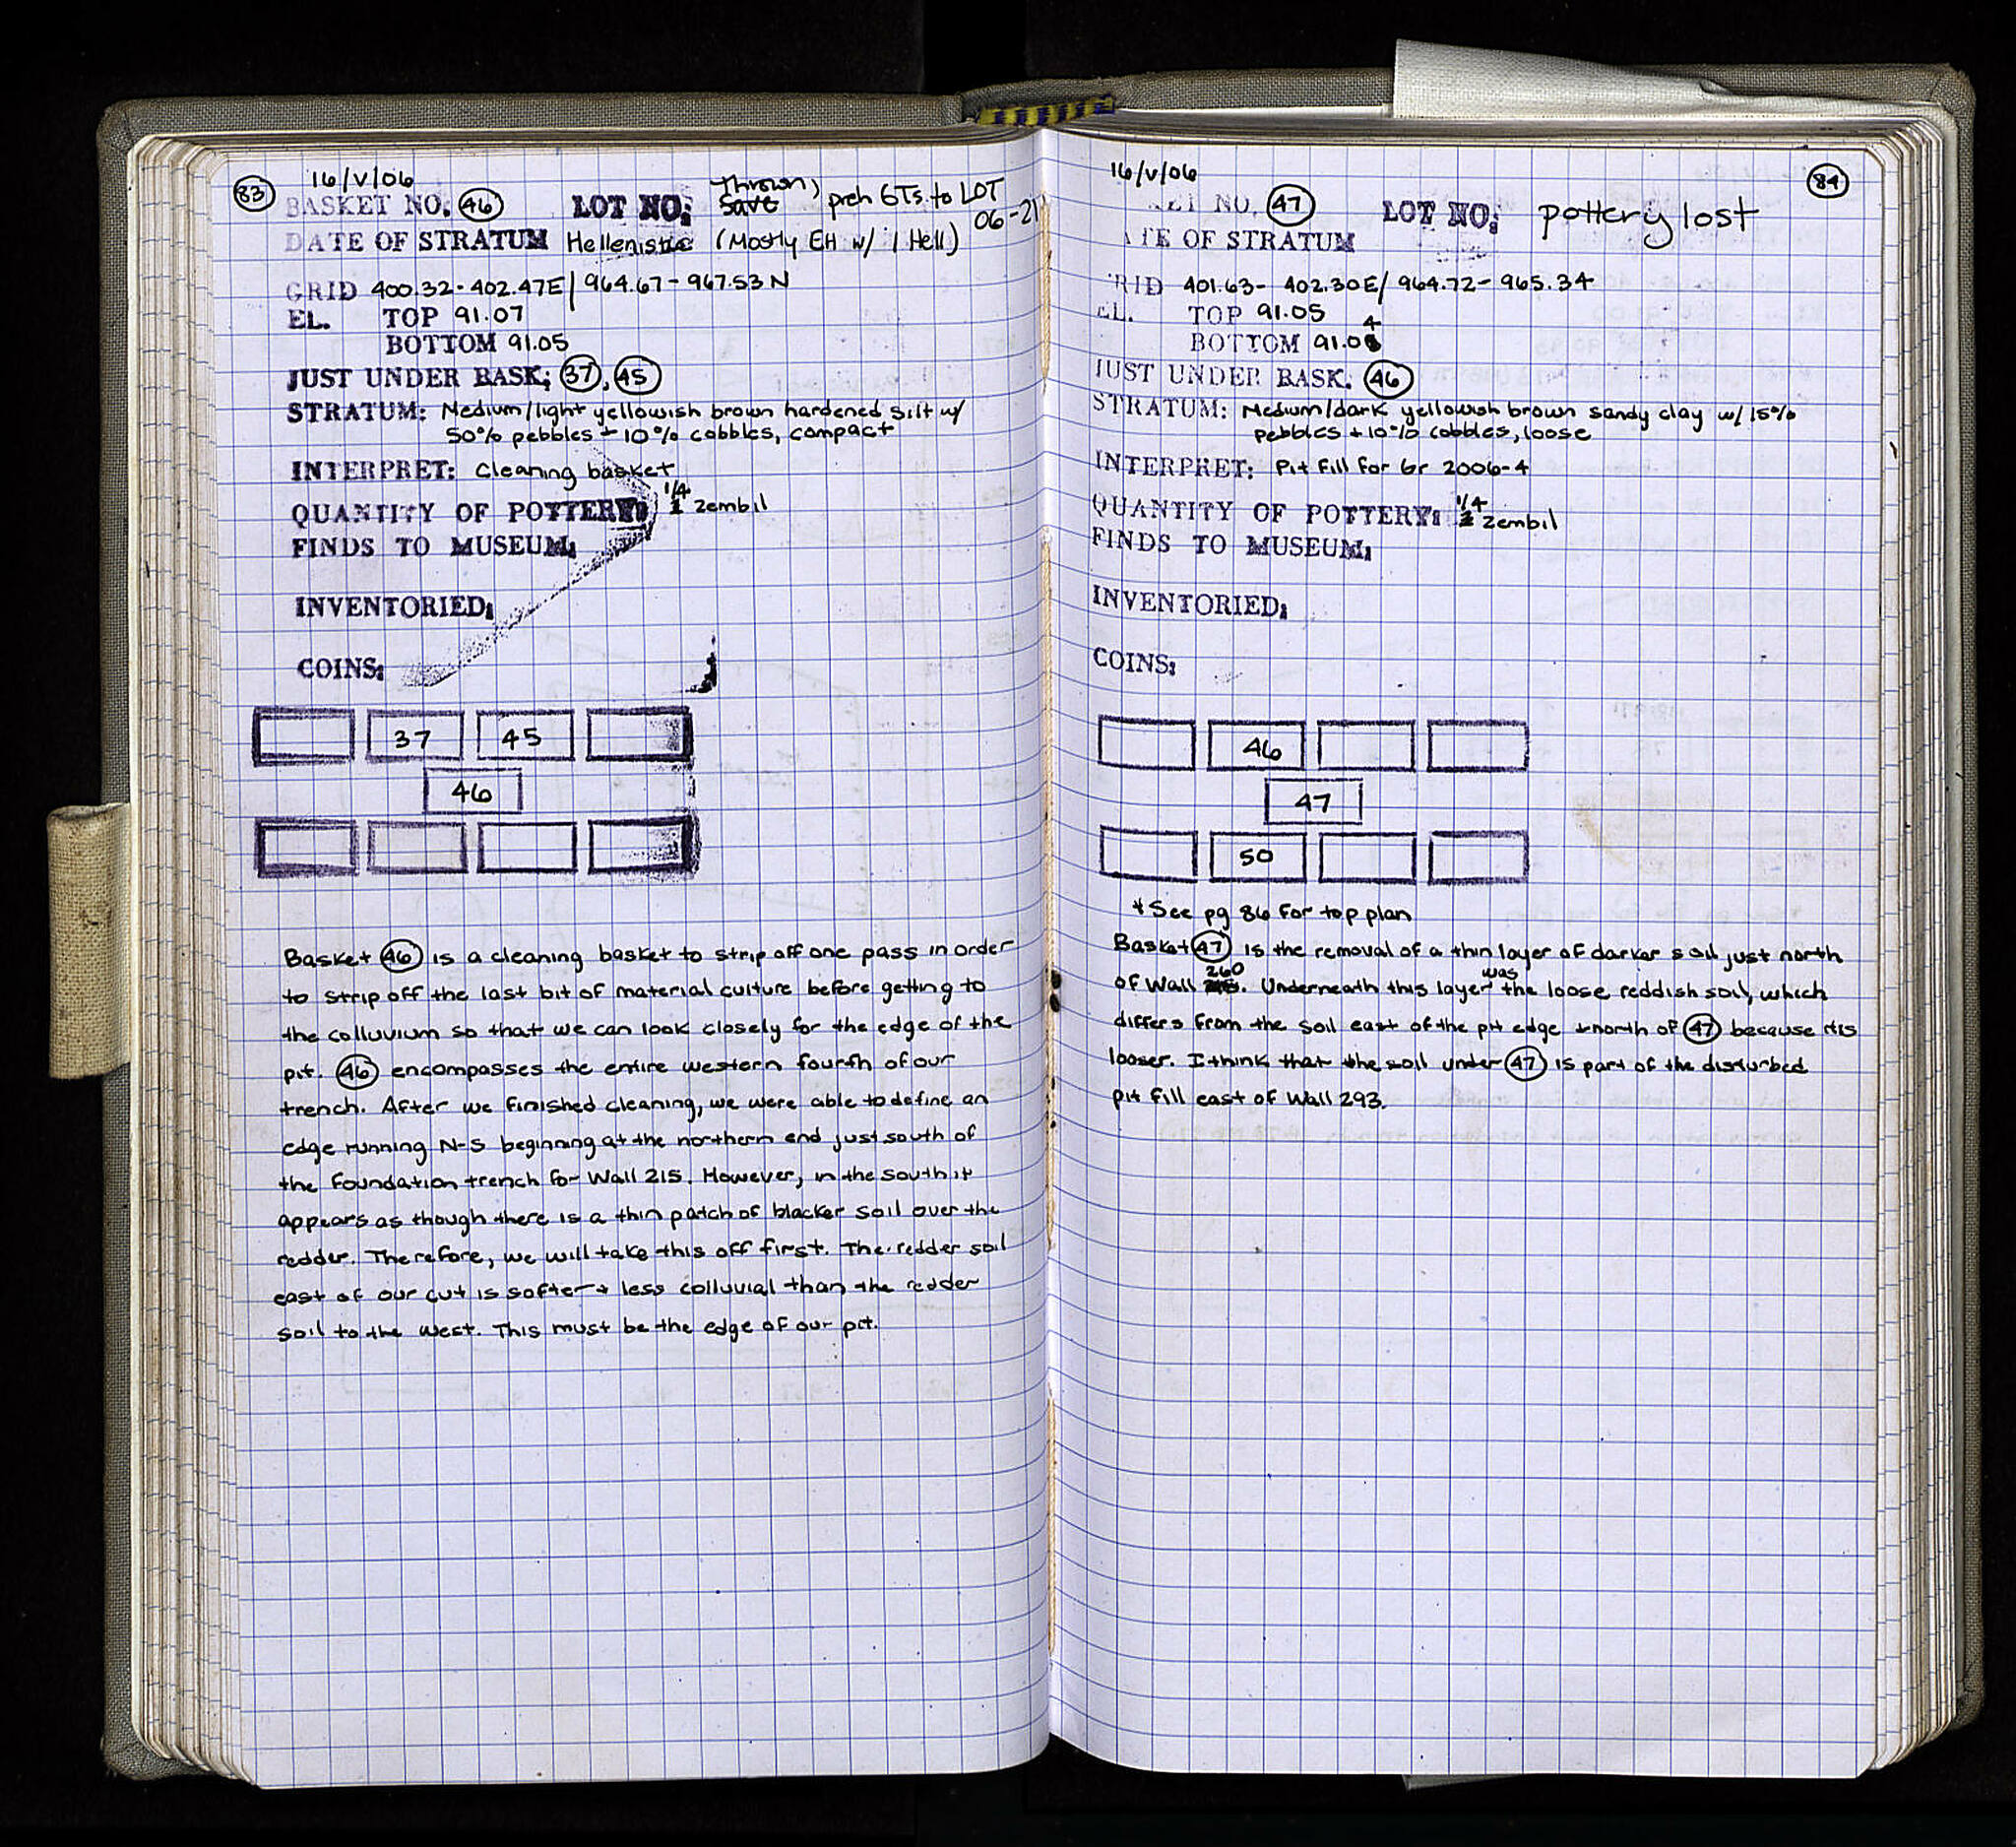 83
16/V/06
BASKET NO. 46 LOT NO: Thrown, Save preh GTs to LOT 06-21
DATE OF STRATUM Hellenistic (Mostly EH w/ 1 Hell)
GRID 400.32-402.47E/964.67-967.53N
EL. TOP 91.07
BOTTOM 91.05
JUST UNDER BASK: 37, 45
STRATUM: Medium/light yellowish brown hardened silt w/
50% pebbles + 10% cobbles, compact
INTERPRET: Cleaning basket
QUANTITY OF POTTERY: 1/4 zembil
FINDS TO MUSEUM:
INVENTORIED:
COINS:
37 45
46
Basket 46 is a cleaning basket to strip off one pass in order
to strip off the last bit of material culture before getting to
the colluvium so that we can look closely for the edge of the
pit. 46 encompasses the entire western fourth of our
trench. After we finished cleaning, we were able to define an
edge running N-S beginning at the northern end just south of
the foundation trench for Wall 215. However, in the south it
appears as though there is a thin patch of blacker soil over the
redder. Therefore, we will take this off first. The redder soil
east of our cut is softer + less colluvial than the redder
soil to the west. This must be the edge of our pit.
84
16/V/06
KET NO. 47 LOT NO: pottery lost
ATE OF STRATUM
RID 401.63-402.30E/964.72-965.34
EL. TOP 91.05
BOTTOM 91.04
JUST UNDER BASK. 46
STRATUM: Medium/dark yellowish brown sandy clay w/15%
pebbles + 10% cobbles, loose
INTERPRET: Pit Fill for Gr 2006-4
QUANTITY OF POTTERY: 1/4 zembil
FINDS TO MUSEUM:
INVENTORIED:
COINS:
46
47
50
*See pg 86 for top plan
Basket 47 is the removal of a thin layer of darker soil just north
of Wall 260. Underneath this layer was the loose reddish soil, which
differs from the soil east of the pit edge + north of 47 because it is
looser. I think that the soil under 47 is part of the disturbed
pit fill east of Wall 293.